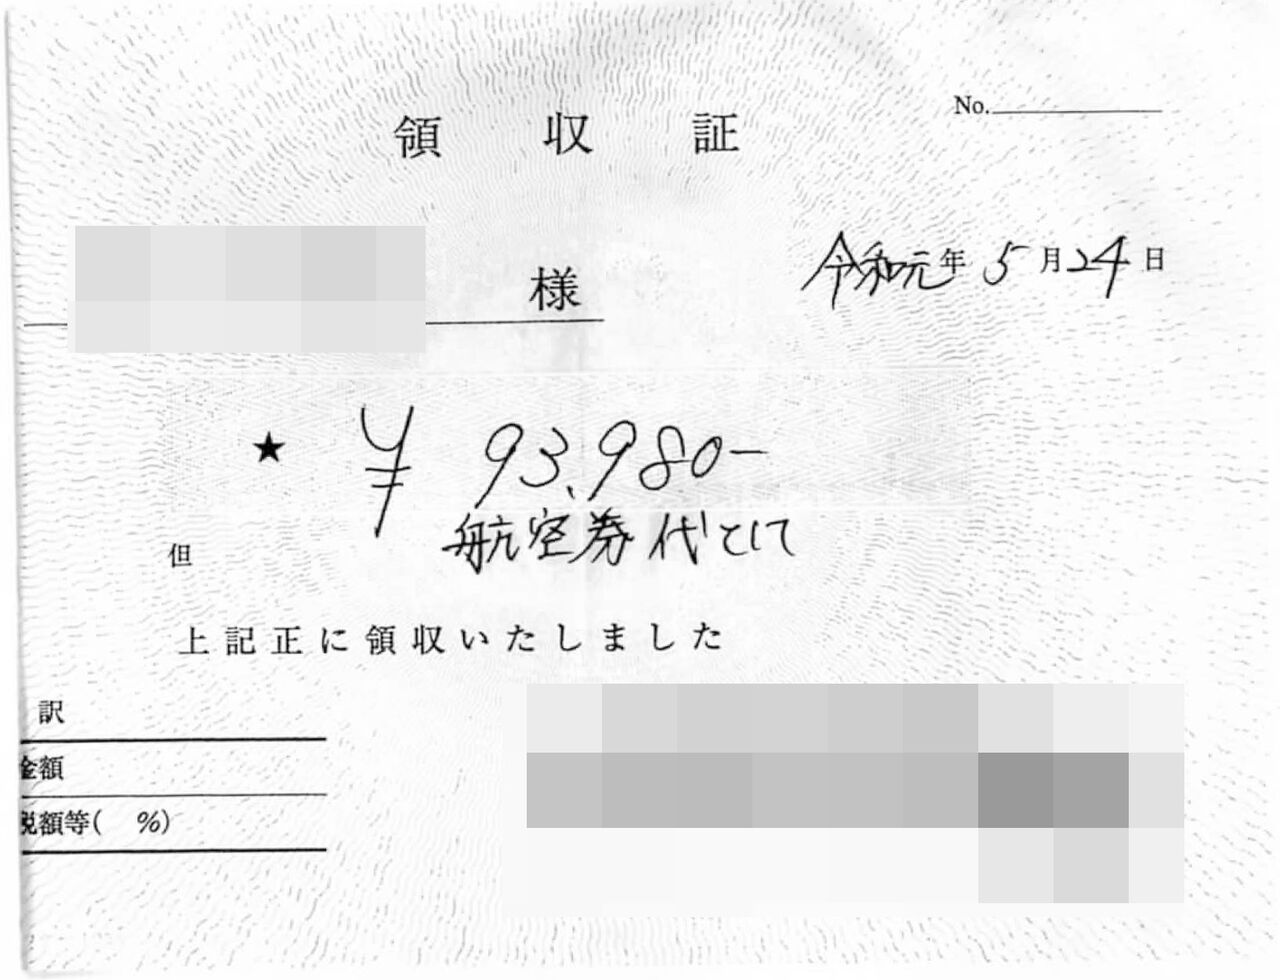 No.
領収証
様
令和元年 5月24日
★ ¥ 93,980-
但 航空券代として
上記正に領収いたしました
訳
金額
税額等( %)